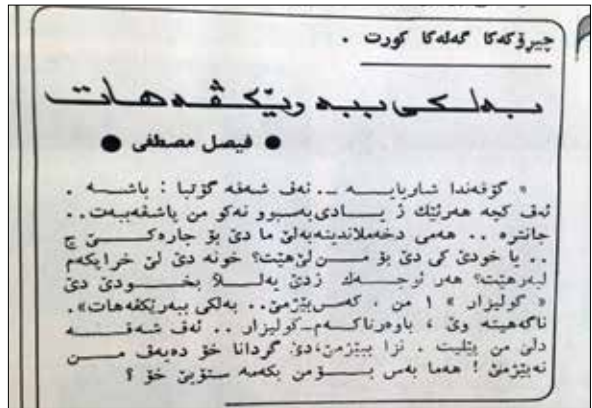 چیرۆکەکا گەلەکا کورت .
بەلکی ببە رێکڤەهات
● فیصل مصطفی ●
« گۆڤەندا شاریایە .. ئەڤ شەڤە گۆتیا : باشە .
ئەڤ کچە هەرێك ژ یادی بەسبرو نەکو من پاشڤەببەت ..
جانترە .. هەمی دخەملاندینە بەلێ ما دێ بۆ جارەکێ چ
.. یا خودێ کی دێ بۆ من لێ هێت؟ خونە دێ لێ خرابکەم
لبەرهێت؟ هەر ئوجەك ژدێ یەلا بخودێ دێ
« کولیزار » ١ من ، کەس بێژمێ .. بەلکی ببەرێکڤەهات» .
ناگەهیتە وێ ، باوەرناکەم_کولیزار .. ئەڤ شەڤە
دلێ من پێلیت . نزا بێژمێ،دێ گردانا خۆ دەیەڤ من
نەبێژمێ ! هەما بەس بۆ من بکەمە ستۆیێ خۆ ؟